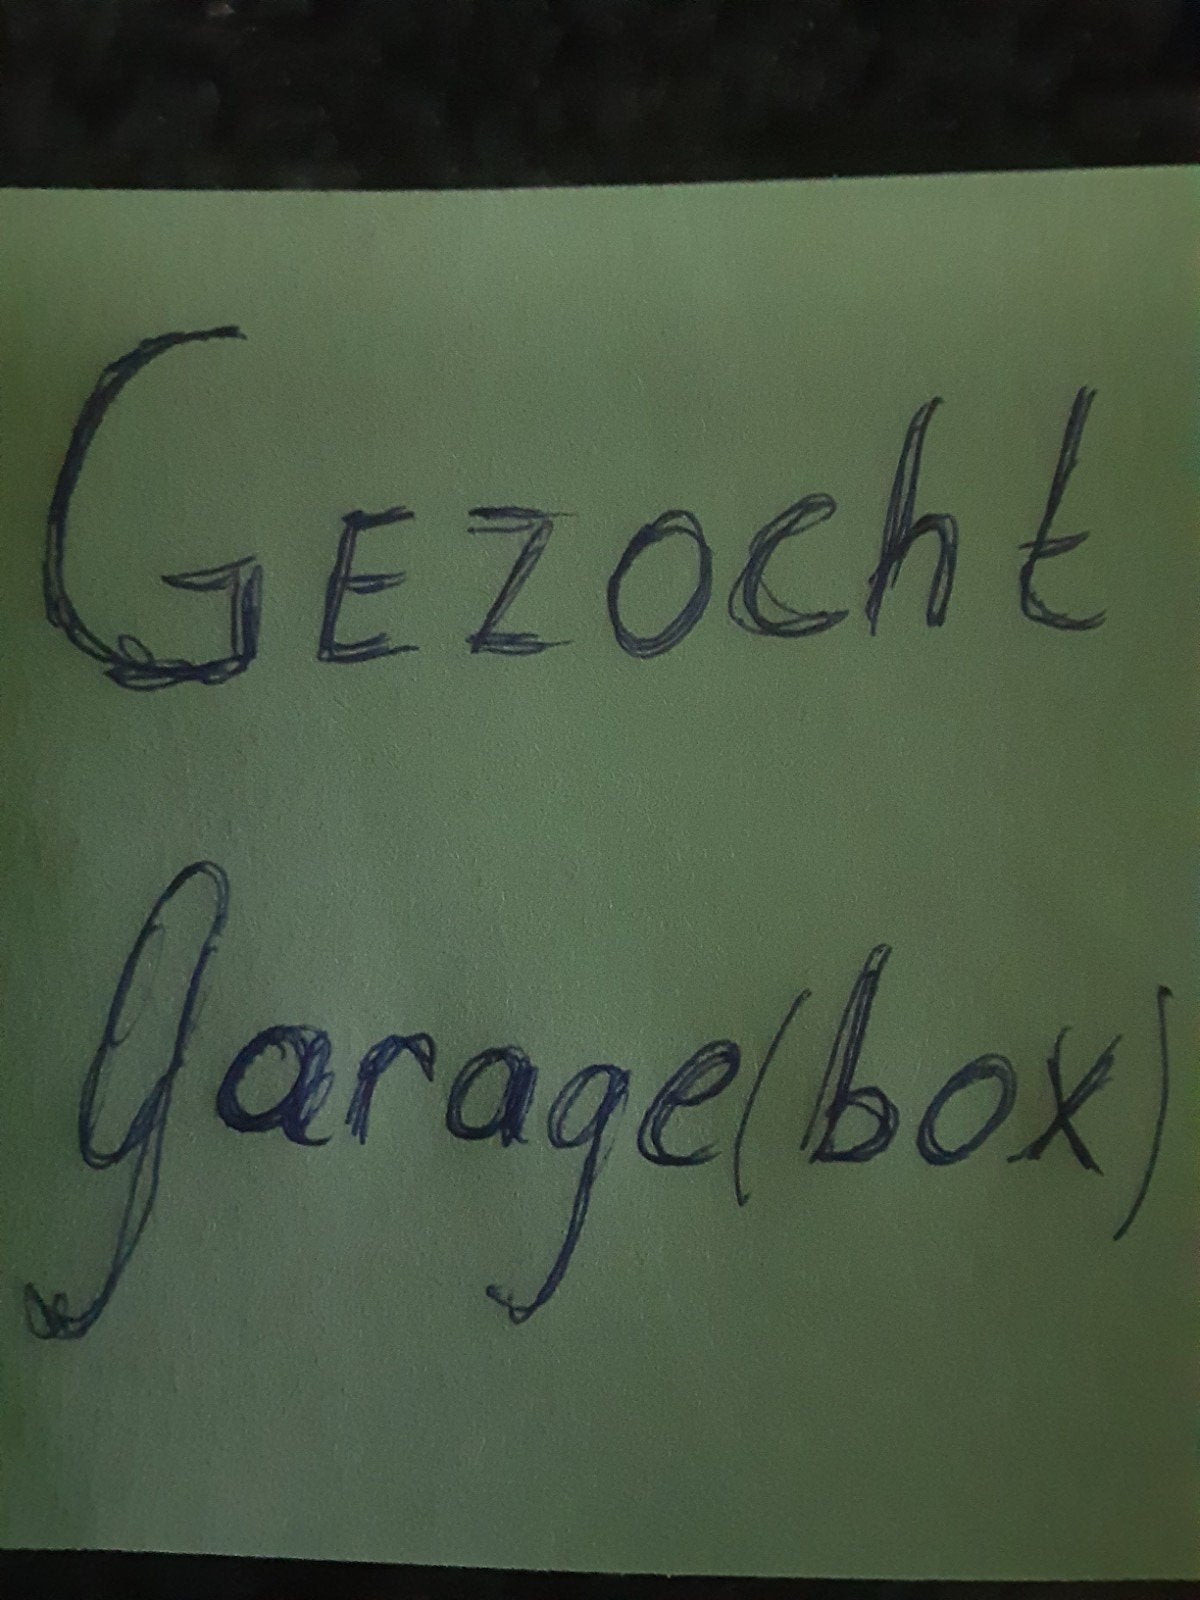 Gezocht
garage(box)